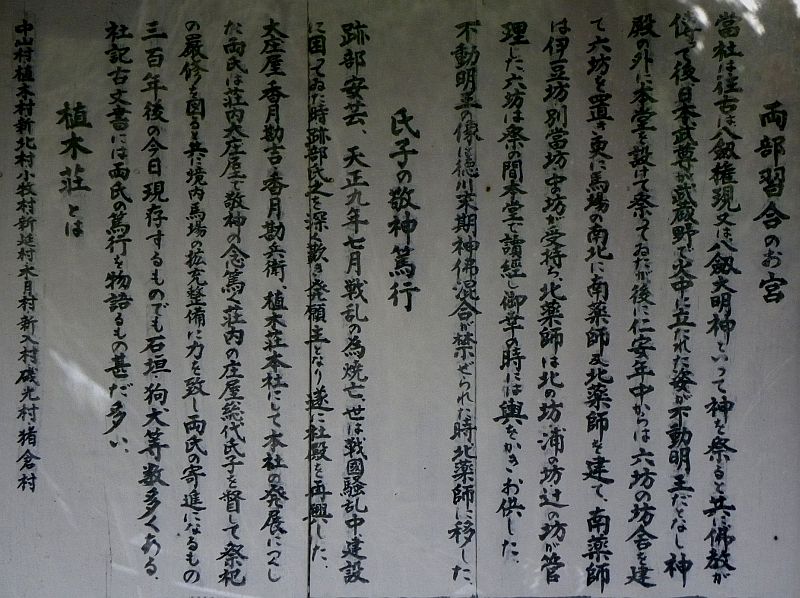 両部習合のお宮
當社は往古は八劔権現又は八劔大明神といって神を祭ると共に佛教が
傳って後日本武尊が武蔵野で火中に立たれた姿が不動明王だとなし神
殿の外に本堂を設けて祭てゐたが後に仁安年中からは六坊の坊舎を建
て六坊を置き更に馬場の南北に南薬師及北薬師を建て、南薬師
は伊立坊別當坊中坊が受持ち北薬師は北の坊浦の坊辻の坊が管
理した六坊は祭の間本堂で讀經し御幸の時には輿をかきお供した、
不動明王の像は徳川末期神佛混合が禁ぜられた時北薬師に移した、
氏子の敬神篤行
跡部安芸、天正九年七月戦乱の為焼亡、世は戦國騒乱中で建設
に困ってゐた時跡部氏之を深く歎き発願主となり遂に社殿を再興した、
大庄屋香月勘吉香月勘兵衛、植木荘本社にして本社の発展につくし
た両氏は荘内大庄屋で敬神の念篤く荘内の庄屋総代氏子を督して祭祀
の厳修を図ると共に境内馬場の拡充整備に力を致し両氏の寄進になるもの
三百年後の今日現存するものでも石垣、狗犬等数多くある、
社記古文書には両氏の篤行を物語るもの甚だ多い、
植木荘とは
中山村植木村新北村小牧村新延村木月村新入村磯光村猪倉村